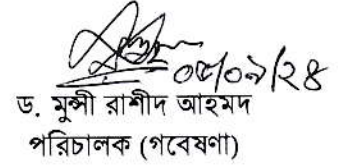 ০৫/০৯/২৪
ড. মুন্সী রাশীদ আহমদ
পরিচালক (গবেষণা)